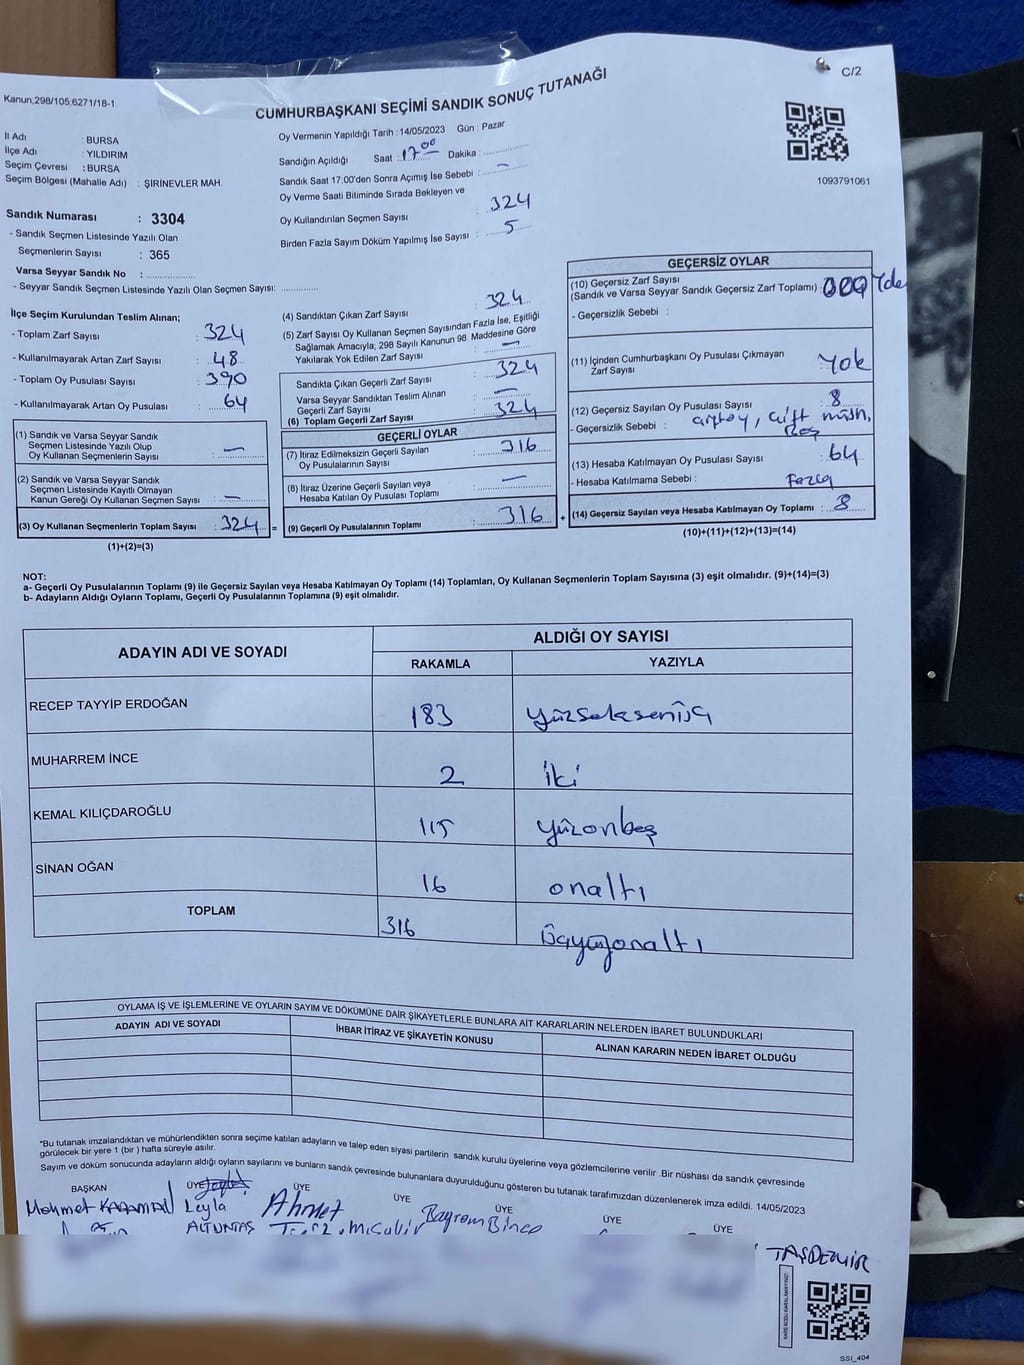 Kanun:298/105;6271/18-1
C/2
CUMHURBAŞKANI SEÇİMİ SANDIK SONUÇ TUTANAĞI
1093791061
İl Adı : BURSA
İlçe Adı : YILDIRIM
Seçim Çevresi : BURSA
Seçim Bölgesi (Mahalle Adı) : ŞİRİNEVLER MAH.
Sandık Numarası : 3304
- Sandık Seçmen Listesinde Yazılı Olan
Seçmenlerin Sayısı : 365
Varsa Seyyar Sandık No :
- Seyyar Sandık Seçmen Listesinde Yazılı Olan Seçmen Sayısı:
Oy Vermenin Yapıldığı Tarih : 14/05/2023 Gün : Pazar
Sandığın Açıldığı Saat : 17.00 Dakika :
Sandık Saat 17.00'den Sonra Açımış İse Sebebi : -
Oy Verme Saati Bitiminde Sırada Bekleyen ve
Oy Kullandırılan Seçmen Sayısı : 324
Birden Fazla Sayım Döküm Yapılmış İse Sayısı : 5
İlçe Seçim Kurulundan Teslim Alınan;
- Toplam Zarf Sayısı : 324
- Kullanılmayarak Artan Zarf Sayısı : 48
- Toplam Oy Pusulası Sayısı : 390
- Kullanılmayarak Artan Oy Pusulası : 64
(1) Sandık ve Varsa Seyyar Sandık
Seçmen Listesinde Yazılı Olup
Oy Kullanan Seçmenlerin Sayısı : -
(2) Sandık ve Varsa Seyyar Sandık
Seçmen Listesinde Kayıtlı Olmayan
Kanun Gereği Oy Kullanan Seçmen Sayısı : -
(3) Oy Kullanan Seçmenlerin Toplam Sayısı : 324 =
(1)+(2)=(3)
(4) Sandıktan Çıkan Zarf Sayısı : 324
(5) Zarf Sayısı Oy Kullanan Seçmen Sayısından Fazla İse, Eşitliği
Sağlamak Amacıyla; 298 Sayılı Kanunun 98. Maddesine Göre
Yakılarak Yok Edilen Zarf Sayısı : -
Sandıkta Çıkan Geçerli Zarf Sayısı : 324
Varsa Seyyar Sandıktan Teslim Alınan
Geçerli Zarf Sayısı : -
(6) Toplam Geçerli Zarf Sayısı : 324
GEÇERLİ OYLAR
(7) İtiraz Edilmeksizin Geçerli Sayılan
Oy Pusulalarının Sayısı : 316
(8) İtiraz Üzerine Geçerli Sayılan veya
Hesaba Katılan Oy Pusulası Toplamı : -
(9) Geçerli Oy Pusulalarının Toplamı : 316 +
GEÇERSİZ OYLAR
(10) Geçersiz Zarf Sayısı
(Sandık ve Varsa Seyyar Sandık Geçersiz Zarf Toplamı) : 000
- Geçersizlik Sebebi :
(11) İçinden Cumhurbaşkanı Oy Pusulası Çıkmayan
Zarf Sayısı : Yok
(12) Geçersiz Sayılan Oy Pusulası Sayısı : 8
- Geçersizlik Sebebi : çift müh,
Boş
(13) Hesaba Katılmayan Oy Pusulası Sayısı : 64
- Hesaba Katılmama Sebebi : Fazla
(14) Geçersiz Sayılan veya Hesaba Katılmayan Oy Toplamı : 8
(10)+(11)+(12)+(13)=(14)
NOT:
a- Geçerli Oy Pusulalarının Toplamı (9) ile Geçersiz Sayılan veya Hesaba Katılmayan Oy Toplamı (14) Toplamları, Oy Kullanan Seçmenlerin Toplam Sayısına (3) eşit olmalıdır. (9)+(14)=(3)
b- Adayların Aldığı Oyların Toplamı, Geçerli Oy Pusulalarının Toplamına (9) eşit olmalıdır.
ADAYIN ADI VE SOYADI
ALDIĞI OY SAYISI
RAKAMLA YAZIYLA
RECEP TAYYİP ERDOĞAN 183 yüzseksenüç
MUHARREM İNCE 2 iki
KEMAL KILIÇDAROĞLU 115 yüzonbeş
SİNAN OĞAN 16 onaltı
TOPLAM 316 üçyüzonaltı
OYLAMA İŞ VE İŞLEMLERİNE VE OYLARIN SAYIM VE DÖKÜMÜNE DAİR ŞİKAYETLERLE BUNLARA AİT KARARLARIN NELERDEN İBARET BULUNDUKLARI
ADAYIN ADI VE SOYADI İHBAR İTİRAZ VE ŞİKAYETİN KONUSU ALINAN KARARIN NEDEN İBARET OLDUĞU
*Bu tutanak imzalandıktan ve mühürlendikten sonra seçime katılan adayların ve talep eden siyasi partilerin sandık kurulu üyelerine veya gözlemcilerine verilir .Bir nüshası da sandık çevresinde
görülecek bir yere 1 (bir ) hafta süreyle asılır.
Sayım ve döküm sonucunda adayların aldığı oyların sayılarını ve bunların sandık çevresinde bulunanlara duyurulduğunu gösteren bu tutanak tarafımızdan düzenlenerek imza edildi. 14/05/2023
BAŞKAN ÜYE ÜYE ÜYE ÜYE ÜYE ÜYE
Mehmet KARAMAN Leyla Ahmet Bayram Bince
ALTUNTAŞ
TAŞDEMİR
KARE KODU KARALAMAYINIZ!
SSI_404